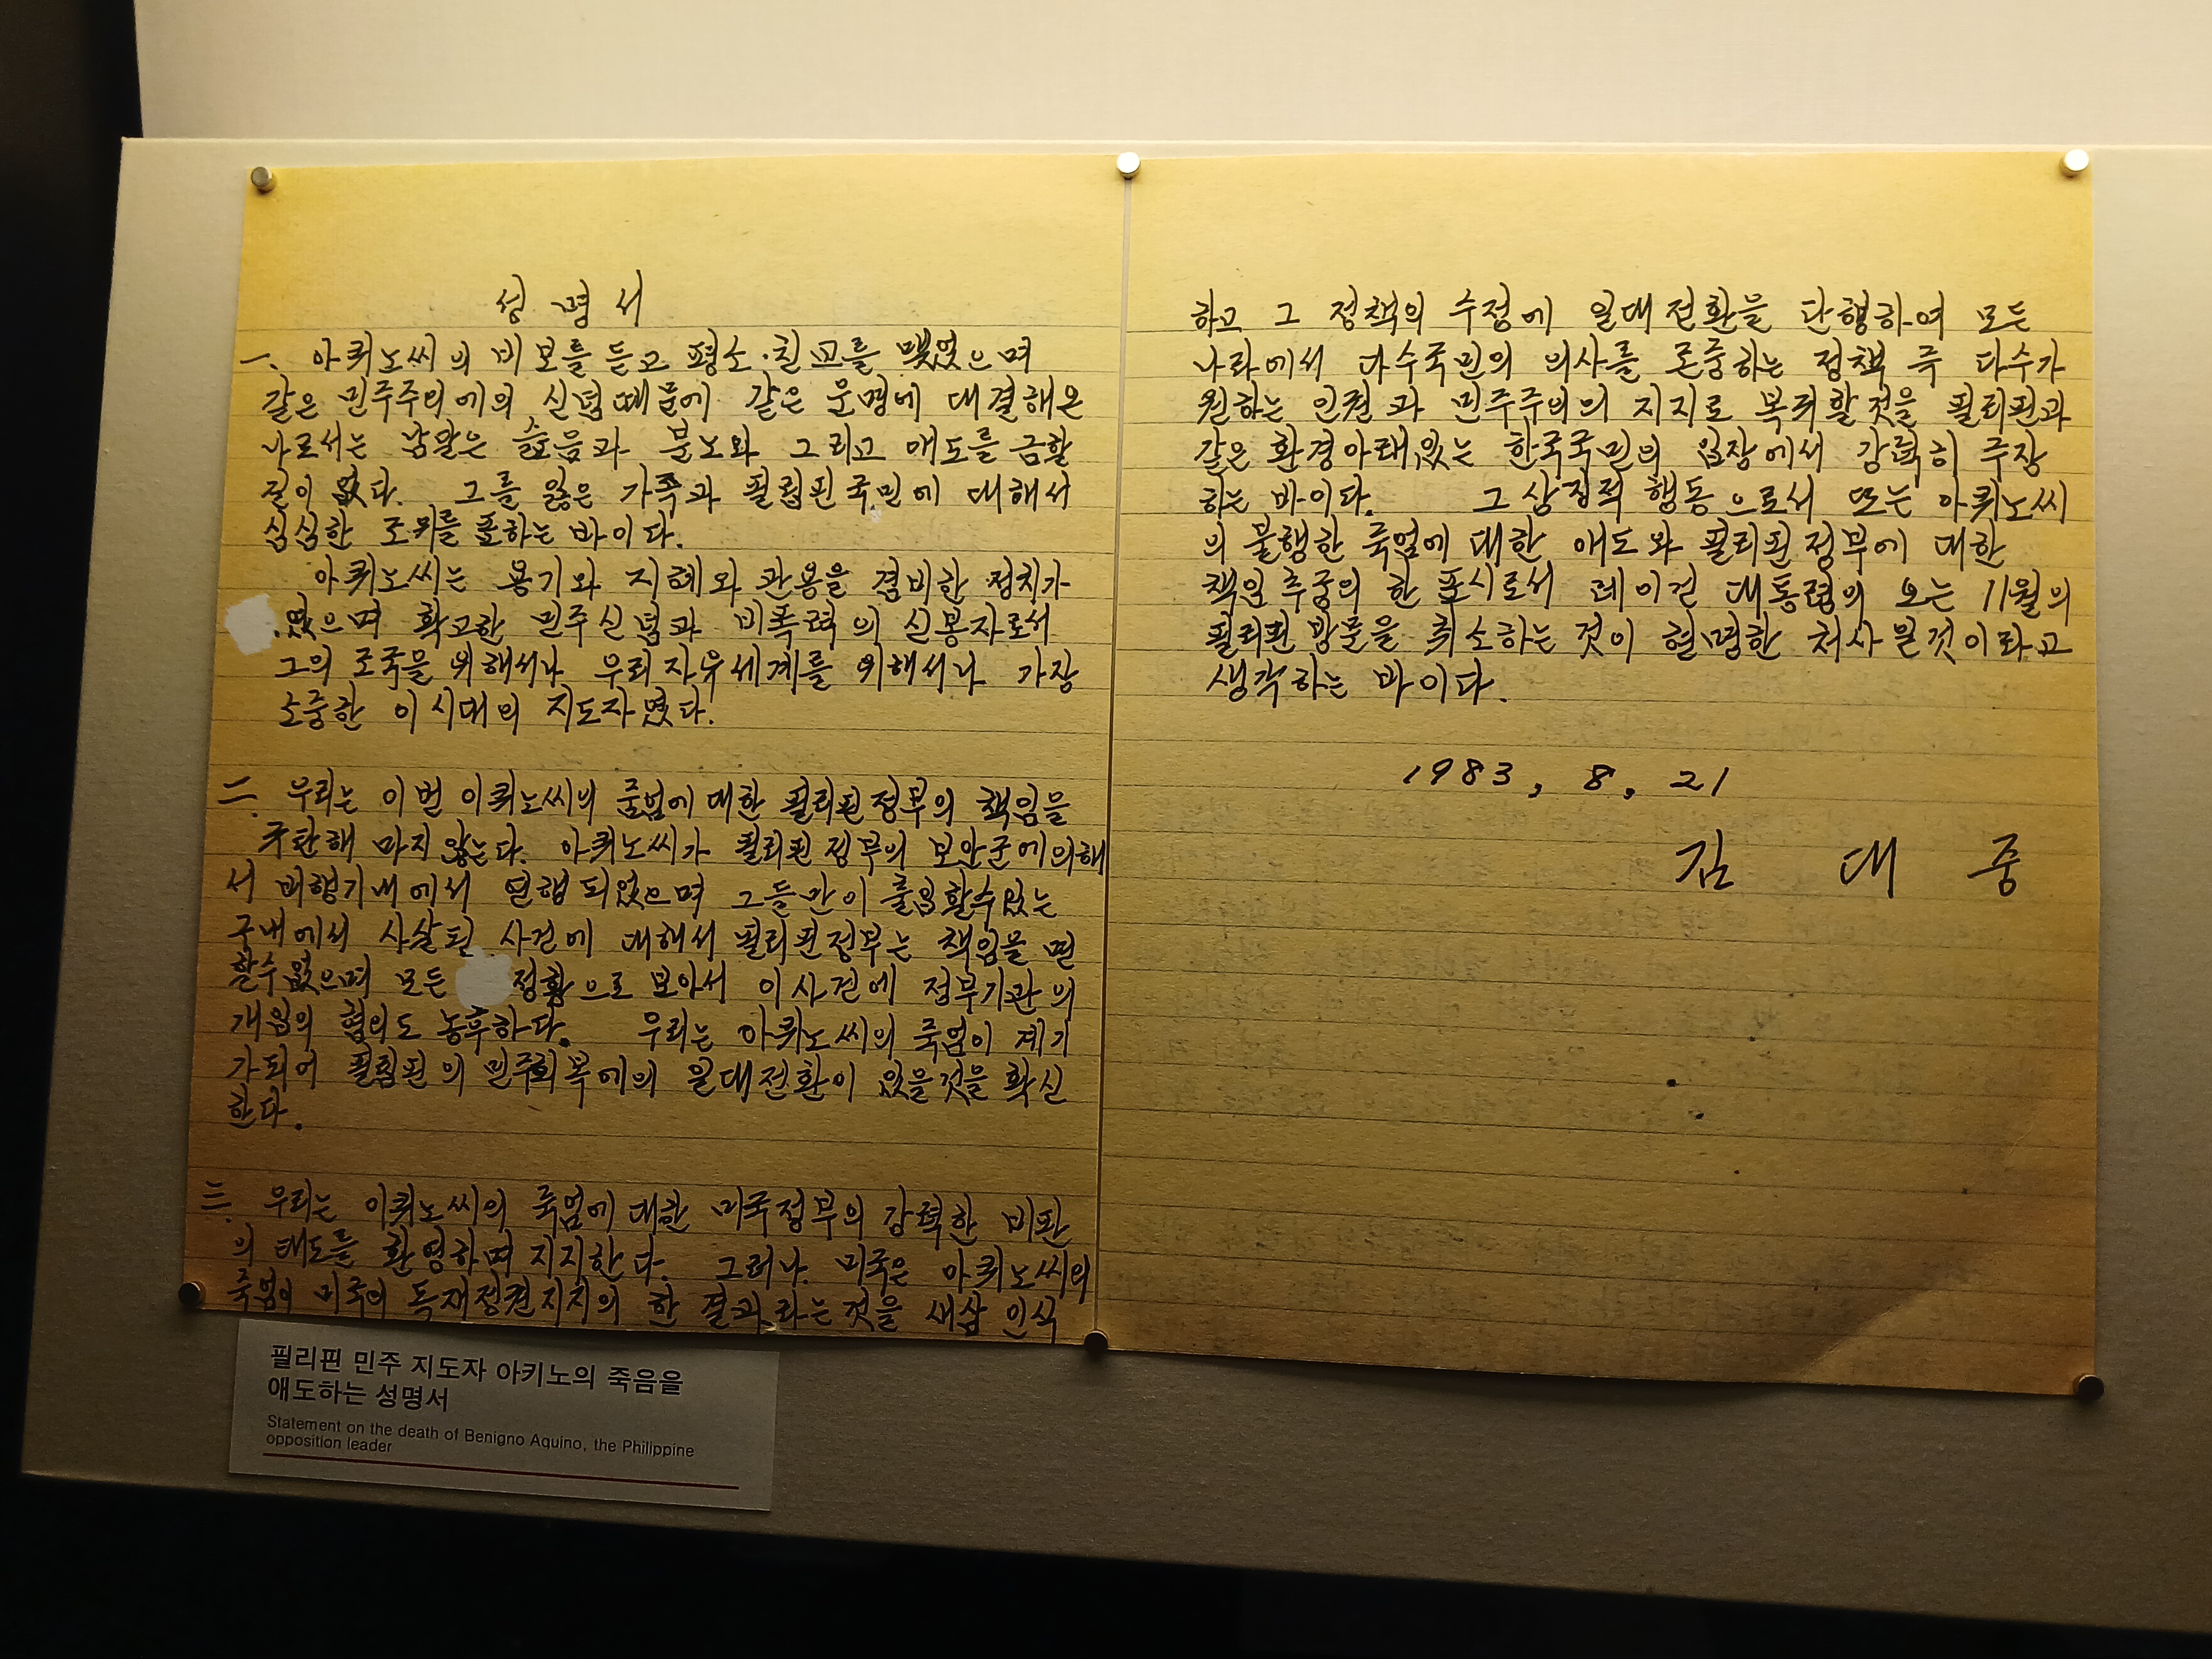 성 명 서
一. 아퀴노씨의 비보를 듣고 평소 친교를 맺었으며
같은 민주주의에의 신념때문에 같은 운명에 대결해온
나로서는 남달은 슬픔과 분노와 그리고 애도를 금할
길이 없다. 그를 잃은 가족과 필립핀국민에 대해서
심심한 조위를 표하는 바이다.
아퀴노씨는 용기와 지혜와 관용을 겸비한 정치가
였으며 확고한 민주신념과 비폭력의 신봉자로서
그의 조국을 위해서나 우리 자유세계를 위해서나 가장
소중한 이 시대의 지도자였다.
二. 우리는 이번 아퀴노씨의 죽엄에 대한 필리핀정부의 책임을
규탄해 마지않는다. 아퀴노씨가 필리핀정부의 보안군에의해
서 비행기내에서 연행되었으며 그들만이 출입할수있는
구내에서 사살된 사건에 대해서 필리핀정부는 책임을 면
할수없으며 모든 정황으로 보아서 이사건에 정부기관의
개입의 혐의도 농후하다. 우리는 아퀴노씨의 죽엄이 계기
가되어 필립핀의 민주회복에의 일대전환이 있을것을 확신
한다.
三. 우리는 아퀴노씨의 죽엄에 대한 미국정부의 강력한 비판
의 태도를 환영하며 지지한다. 그러나 미국은 아퀴노씨의
죽엄이 미국의 독재정권지지의 한 결과라는 것을 새삼 인식
하고 그 정책의 수정에 일대전환을 단행하여 모든
나라에서 다수국민의 의사를 존중하는 정책 즉 다수가
원하는 인권과 민주주의의 지지로 복귀할것을 필리핀과
같은 환경아래있는 한국국민의 입장에서 강력히 주장
하는 바이다. 그 상징적 행동으로서 또는 아퀴노씨
의 불행한 죽엄에 대한 애도와 필리핀정부에 대한
책임추궁의 한 표시로서 레이건 대통령의 오는 11월의
필리핀 방문을 취소하는 것이 현명한 처사일것이라고
생각하는 바이다.
1983, 8, 21
김 대 중
필리핀 민주 지도자 아키노의 죽음을
애도하는 성명서
Statement on the death of Benigno Aquino, the Philippine
opposition leader